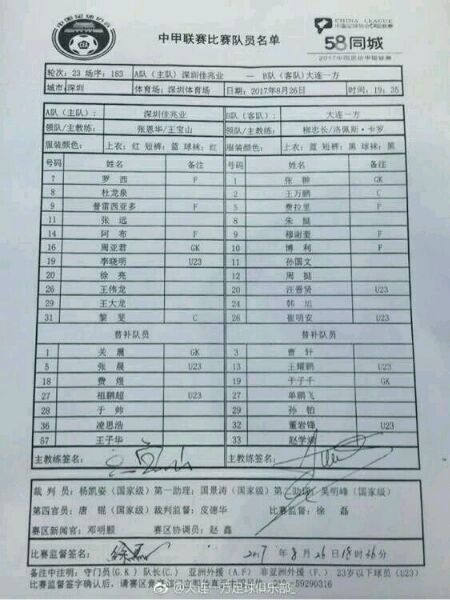 中国足球协会
中甲联赛比赛队员名单
CHINA LEAGUE
58同城
2017中国足协中甲联赛
轮次：23 场序：183 A队（主队）深圳佳兆业 — B队（客队）大连一方
城市：深圳 体育场：深圳体育场 日期：2017年8月26日 时间：19：35
A队（主队）： 深圳佳兆业 B队（客队）： 大连一方
领队/主教练： 张恩华/王宝山 领队/主教练： 柳忠长/洛佩斯·卡罗
服装颜色： 上衣：红 短裤：蓝 球袜：红 服装颜色： 上衣：蓝 短裤：黑 球袜：黑
号码 姓名 备注 号码 姓名 备注
7 罗西 F 1 张翀 GK
8 杜龙泉 2 王万鹏 C
9 普雷西亚多 F 5 费拉里 F
11 张远 8 朱挺
14 阿布 F 9 穆谢奎 F
16 周亚君 GK 10 博利 F
19 李晓明 U23 11 孙国文
20 徐亮 12 周挺
26 王伟龙 20 汪晋贤 U23
29 王大龙 24 韩旭
31 黎斐 C 26 崔明安 U23
替补队员 替补队员
1 关震 GK 3 曹轩
5 张晨 U23 13 王耀鹏 U23
18 费煜 19 于子千 GK
27 祖鹏超 U23 27 单鹏飞
28 于帅 29 孙铂
36 凌思浩 32 董岩锋 U23
57 王子华 33 赵学斌
主教练签名： 主教练签名：
裁判员：杨凯姿（国家级）第一助理：国景涛（国家级）第二助理：吴明峰（国家级）
第四官员：唐锟（国家级）裁判监督：皮德华 比赛监督：徐磊
赛区新闻官：邓明颢 赛区协调员：赵鑫
比赛监督签名： 徐磊 2017年8月26日18时36分
备注中注明：守门员(GK) 队长(C) 亚洲外援（AF） 非亚洲外援（F） 23岁以下球员（U23）
比赛监督签字确认后，请赛区
59290316
@大连一方足球俱乐部